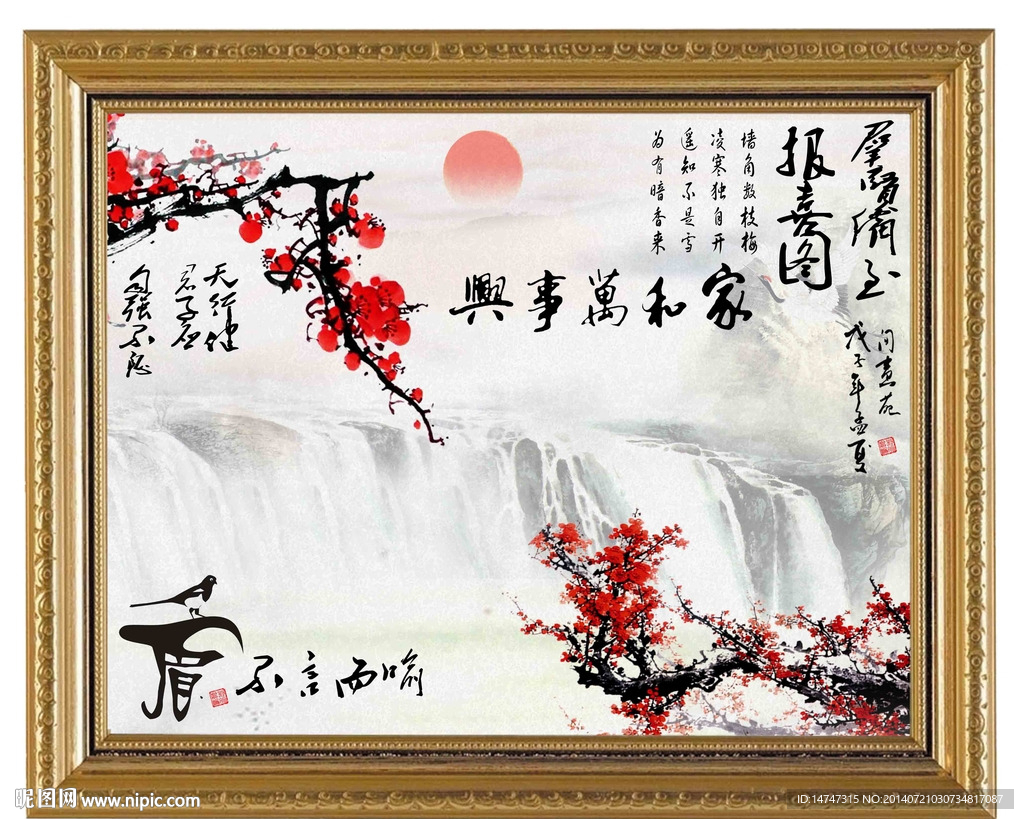 报喜图
墙角数枝梅
凌寒独自开
遥知不是雪
为有暗香来
戊子年孟夏
家和萬事興
天行健
君子
自强不息
不言而喻
昵图网 www.nipic.com
ID:14747315 NO:20140721030734817087